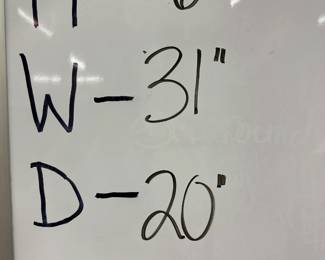 W - 31"
D - 20"